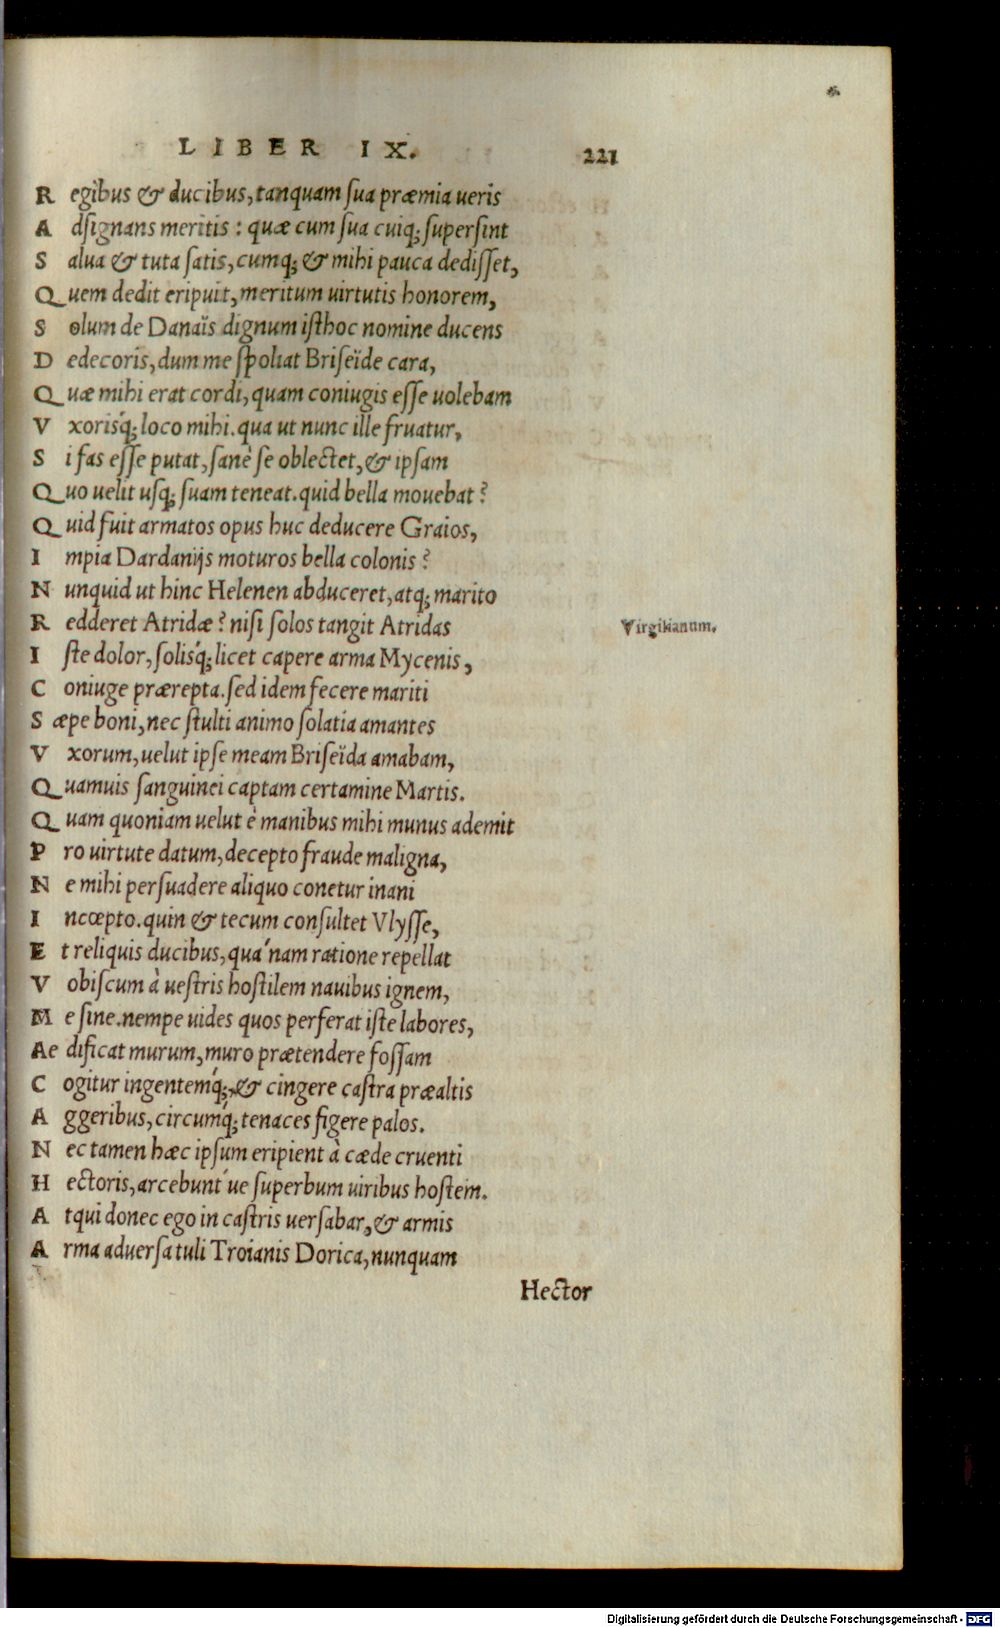 LIBER IX. 221
Regibus & ducibus, tanquam ſua præmia ueris
Adſignans meritis : quæ cum ſua cuiq; ſuperſint
Salua & tuta ſatis, cumq; & mihi pauca dediſſet,
Quem dedit eripuit, meritum uirtutis honorem,
Solum de Danaïs dignum iſthoc nomine ducens
Dedecoris, dum me ſpoliat Briſeïde cara,
Quæ mihi erat cordi, quam coniugis eſſe uolebam
Vxorisq́; loco mihi. qua ut nunc ille fruatur,
Si fas eſſe putat, ſanè ſe oblectet, & ipſam
Quo uelit uſq; ſuam teneat. quid bella mouebat?
Quid fuit armatos opus huc deducere Graios,
Impia Dardanijs moturos bella colonis?
Nunquid ut hinc Helenen abduceret, atq; marito
Redderet Atridæ? niſi ſolos tangit Atridas
Virgilianum.
Iſte dolor, ſolisq́; licet capere arma Mycenis,
Coniuge prærepta. ſed idem fecere mariti
Sæpe boni, nec ſtulti animo ſolatia amantes
Vxorum, uelut ipſe meam Briſeïda amabam,
Quamuis ſanguinei captam certamine Martis.
Quam quoniam uelut è manibus mihi munus ademit
Pro uirtute datum, decepto fraude maligna,
Ne mihi perſuadere aliquo conetur inani
Incœpto. quin & tecum conſultet Vlyſſe,
Et reliquis ducibus, quá nam ratione repellat
Vobiſcum à ueſtris hoſtilem nauibus ignem,
Me ſine. nempe uides quos perferat iſte labores,
Aedificat murum, muro prætendere foſſam
Cogitur ingentemq́;, & cingere caſtra præaltis
Aggeribus, circumq́; tenaces figere palos.
Nec tamen hæc ipſum eripient à cæde cruenti
Hectoris, arcebunt ́ue ſuperbum uiribus hoſtem.
Atqui donec ego in caſtris uerſabar, & armis
Arma aduerſa tuli Troianis Dorica, nunquam
Hector
Digitalisierung gefördert durch die Deutsche Forschungsgemeinschaft - DFG